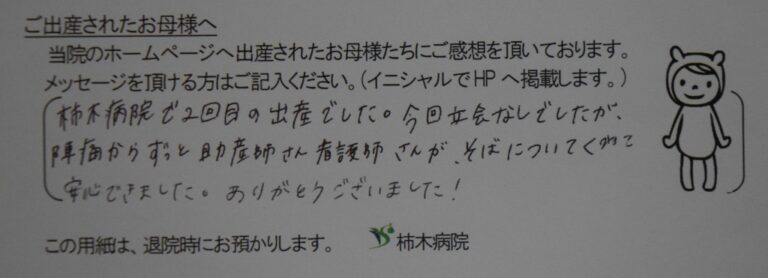 ご出産されたお母様へ
当院のホームページへ出産されたお母様たちにご感想を頂いております。
メッセージを頂ける方はご記入ください。(イニシャルでHPへ掲載します。)
柿木病院で2回目の出産でした。今回立会なしでしたが、
陣痛からずっと助産師さん看護師さんが、そばについてくれて
安心できました。ありがとうございました!
この用紙は、退院時にお預かりします。 柿木病院